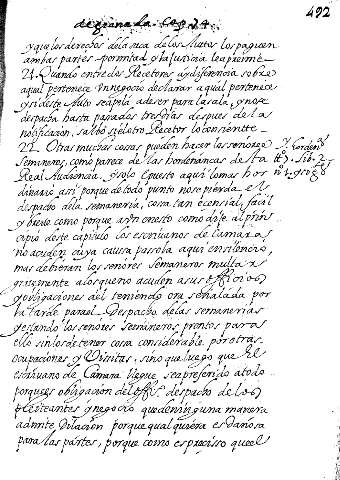 de granada. Cap. 24.
492
y que los derechos de la saca de los Autos los paguen
ambas partes por mitad y la justicia lea premie
21. Quando entre dos Recetores ay diferencia sobre
a qual pertenece vn negocio declarar a qual pertenece
y si deste Auto suplica a de ser para la sala, y no se
despacha hasta pasados tres dias despues de la
notificacion, salbo si el otro Recetor lo consiente
22. Otras muchas cosas pueden hazer los señores
Semaneros, como parece de las hordenanças desta
Real Audiencia. y solo e puesto aqui lo mas hor
dinario assi porque de todo punto no se pierda el
despacho de la semaneria, cosa tan ecensial, facil
y breve como porque assi onesto como dije al prin
cipio deste capitulo los escriuanos de camara
no acuden cuya caussa passo la aqui en silencio,
mas debieran los señores Semaneros multar
grauemente a los que no acuden a sus officios
y obligaciones del teniendo ora señalada por
la tarde para el Despacho de las semanerias
y estando los señores semaneros prontos para
ello sin los detener cosa considerable por otras
ocupaciones y Visitas, sino que luego que el
escriuano de Camara llegue sea preferido a todo
porque es obligacion del offº. despacho de los
pleiteantes y negocio que de ninguna manera
admite Dilacion porque qualquiera es dañosa
para las partes, porque como es preciso que el